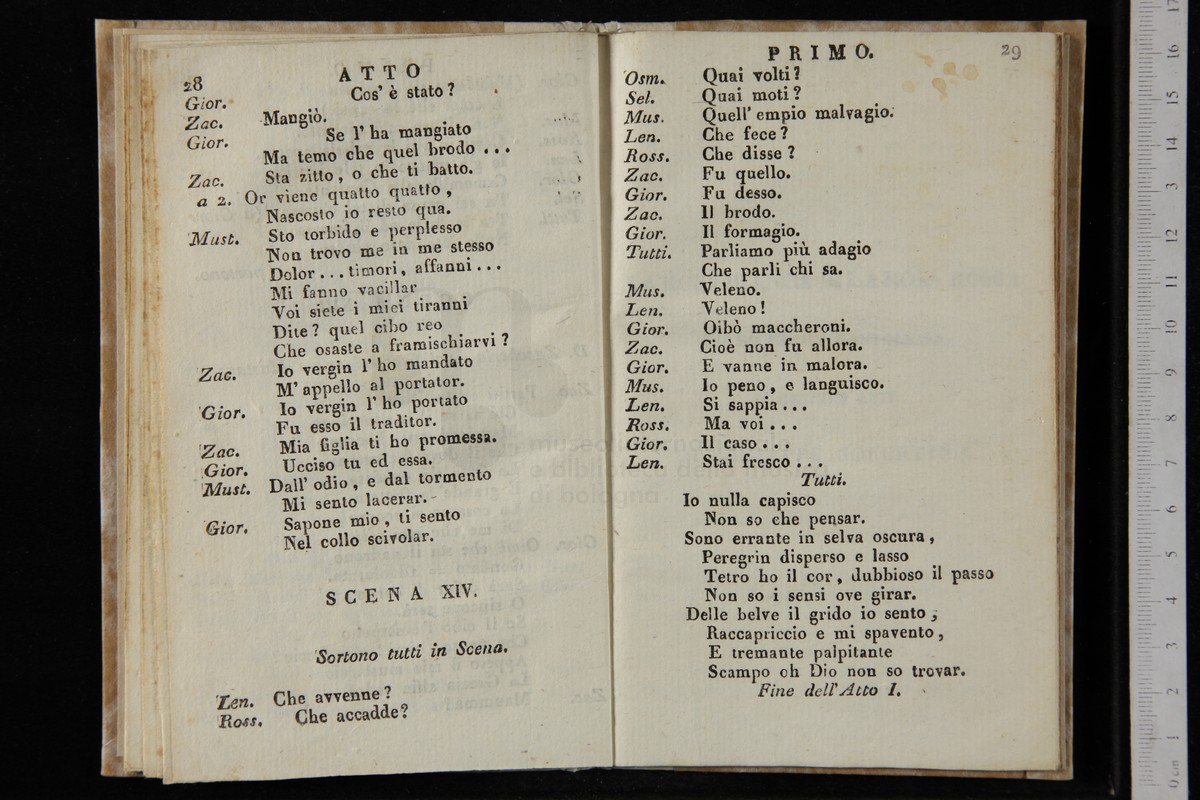 28 ATTO
Gior. Cos' è stato?
Zac. Mangiò.
Gior. Se l' ha mangiato
Ma temo che quel brodo ...
Zac. Sta zitto, o che ti batto.
a 2. Or viene quatto quatto,
Nascosto io resto qua.
Must. Sto torbido e perplesso
Non trovo me in me stesso
Dolor...timori, affanni...
Mi fanno vacillar
Voi siete i miei tiranni
Dite? quel cibo reo
Che osaste a framischiarvi?
Zac. Io vergin l' ho mandato
M' appello al portator.
Gior. Io vergin l' ho portato
Fu esso il traditor.
Zac. Mia figlia ti ho promessa.
Gior. Ucciso tu ed essa.
Must. Dall' odio, e dal tormento
Mi sento lacerar.
Gior. Sapone mio, ti sento
Nel collo scivolar.
SCENA XIV.
Sortono tutti in Scena.
Len. Che avvenne?
Ross. Che accadde?
PRIMO. 29
Osm. Quai volti?
Sel. Quai moti?
Mus. Quell' empio malvagio.
Len. Che fece?
Ross. Che disse?
Zac. Fu quello.
Gior. Fu desso.
Zac. Il brodo.
Gior. Il formagio.
Tutti. Parliamo più adagio
Che parli chi sa.
Mus. Veleno.
Len. Veleno!
Gior. Oibò maccheroni.
Zac. Cioè non fu allora.
Gior. E vanne in malora.
Mus. Io peno, e languisco.
Len. Si sappia...
Ross. Ma voi...
Gior. Il caso...
Len. Stai fresco...
Tutti.
Io nulla capisco
Non so che pensar.
Sono errante in selva oscura,
Peregrin disperso e lasso
Tetro ho il cor, dubbioso il passo
Non so i sensi ove girar.
Delle belve il grido io sento;
Raccapriccio e mi spavento,
E tremante palpitante
Scampo oh Dio non so trovar.
Fine dell' Atto I.